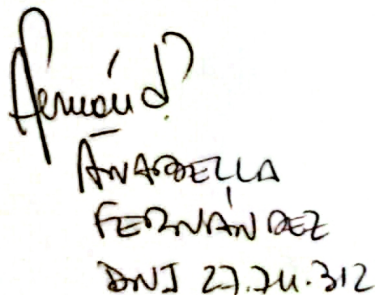 ANABELLA
FERNÁNDEZ
DNI 27.711.312